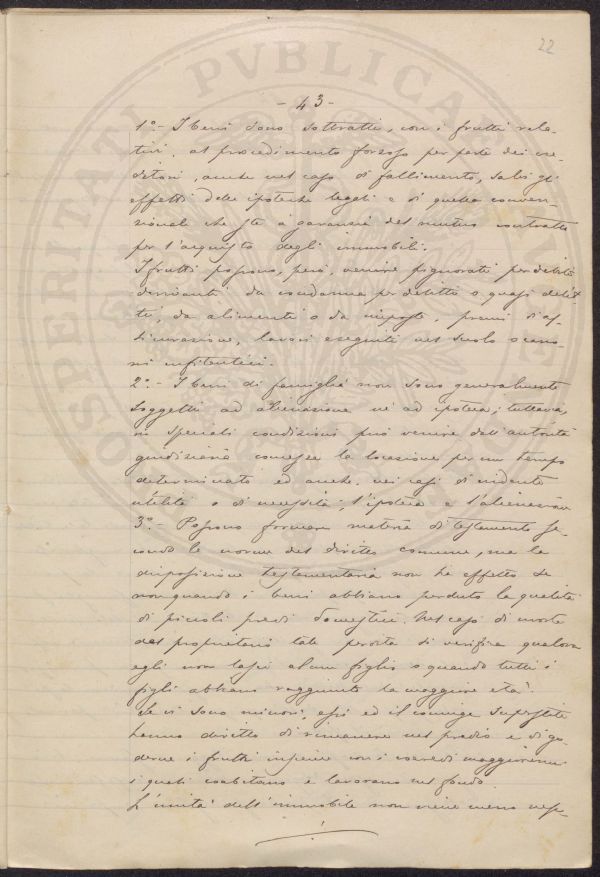 22
- 43 -
1º.- I beni sono sottratti, con i frutti rela-
tivi, al procedimento forzoso per parte dei cre-
ditori, anche nel caso di fallimento, salvi gli
effetti delle ipoteche legali e di quella conven-
zionale che sta a garanzia del mutuo contratto
per l'acquisto degli immobili.
I frutti possono, però, venire pignorati per debiti
derivanti da condanna per delitti o quasi delit-
ti, da alimenti o da imposte, premi d'as-
sicurazione, lavori eseguiti nel suolo o cano-
ni enfiteutici.
2º.- I beni di famiglia non sono generalmente
soggetti ad alienazione nè ad ipoteca; tuttavia,
in speciali condizioni può venire dall'autorità
giudiziaria concessa la locazione per un tempo
determinato ed anche, nei casi di evidente
utilità o di necessità, l'ipoteca e l'alienazione
3º.- Possono formare materia di testamento se-
condo le norme del diritto comune, ma la
disposizione testamentaria non ha effetto se
non quando i beni abbiano perduto la qualità
di piccoli predi domestici. Nel caso di morte
del proprietario tale perdita si verifica qualora
egli non lasci alcun figlio o quando tutti i
figli abbiano raggiunto la maggiore età.
Se vi sono minori, essi ed il coniuge superstite
hanno diritto di rimanere nel predio e di go-
derne i frutti insieme con i coeredi maggiorenni
i quali coabitano e lavorano nel fondo.
L'unità dell'immobile non viene meno nep-
PROSPERITATI PVBLICAE